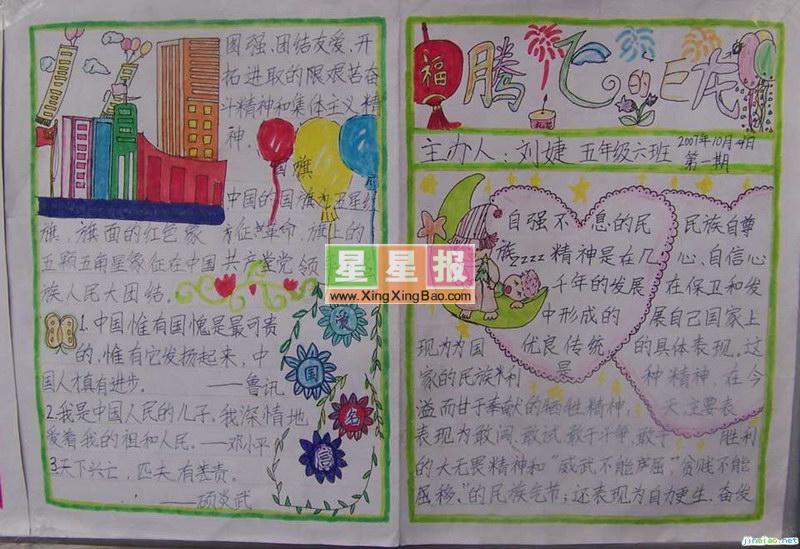 图强、团结友爱、开
拓进取的限艰苦奋
斗精神和集体主义精
神。
国旗
中国的国旗为五星红
旗，旗面的红色象征革命，旗上的
五颗五角星象征在中国共产党领
族人民大团结。
1.中国惟有国愧是最可贵
的，惟有它发扬起来，中
国人才真有进步。——鲁讯
2.我是中国人民的儿子。我深情地
爱着我的祖和人民。——邓小平
3天下兴亡，匹夫有差责。
——顾炎武
爱
国
名
言
福
腾飞的巨龙
主办人：刘婕 五年级六班 2007年10月4日
第一期
自强不息的民
族zzzz精神是在几
千年的发展
中形成的
优良传统
是
民族自尊
心、自信心
在保卫和发
展自己国家上
的具体表现。这
种精神，在今
天主要表
现为为国
家的民族利
溢而甘于奉献的牺牲精神，
表现为敢闯、敢试、敢于斗争、敢于胜利
的大无畏精神和“威武不能屈”“贫贱不能
屈移、”的民族气节；还表现为自力更生、奋发
星星报
www.XingXingBao.com
jinmiao.net